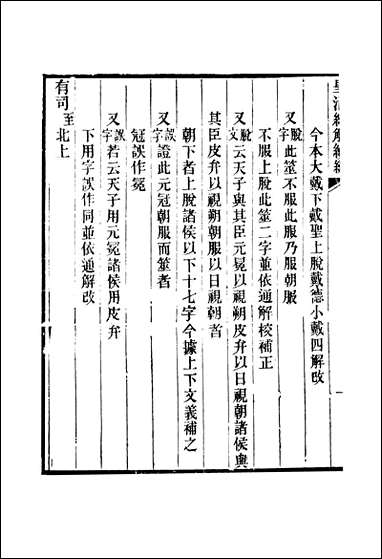 今本大戴下戴聖上脫戴德小戴四解改
又脫字此筮不服此服乃服朝服
不服上脫此筮二字並依通解校補正
又脫文云天子與其臣元冕以視朔皮弁以日視朝諸侯與
其臣皮弁以視朔朝服以日視朝者
朝下者上脫諸侯以下十七字今據上下文義補之
又誤字證此元冠朝服而筮者
冠誤作冕
又誤字若云天子用元冕諸侯用皮弁
下用字誤作同並依通解改
有司至北上